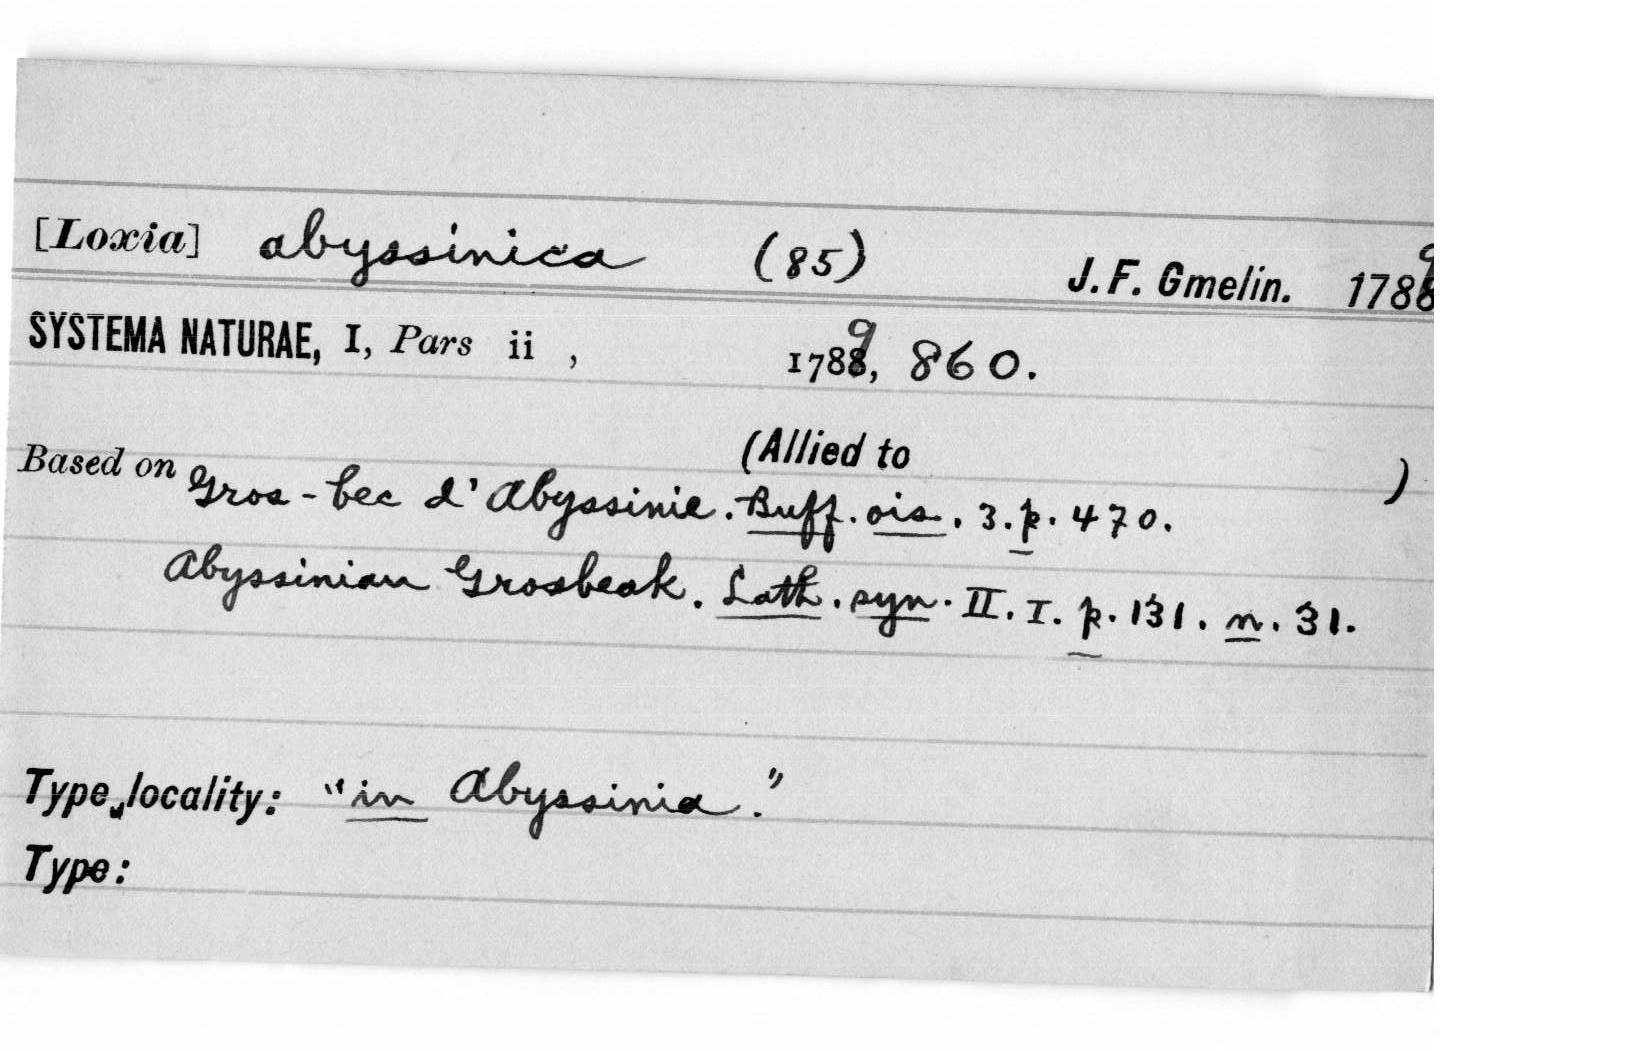 [Loxia] abyssinica (85) J. F. Gmelin. 1789
SYSTEMA NATURAE, I, Pars ii , 1789, 860.
(Allied to )
Based on Gros-bec d'Abyssinie. Buff. ois. 3. p. 470.
Abyssinian Grosbeak. Lath. syn. II. I. p. 131. n. 31.
Type locality: "in Abyssinia."
Type: